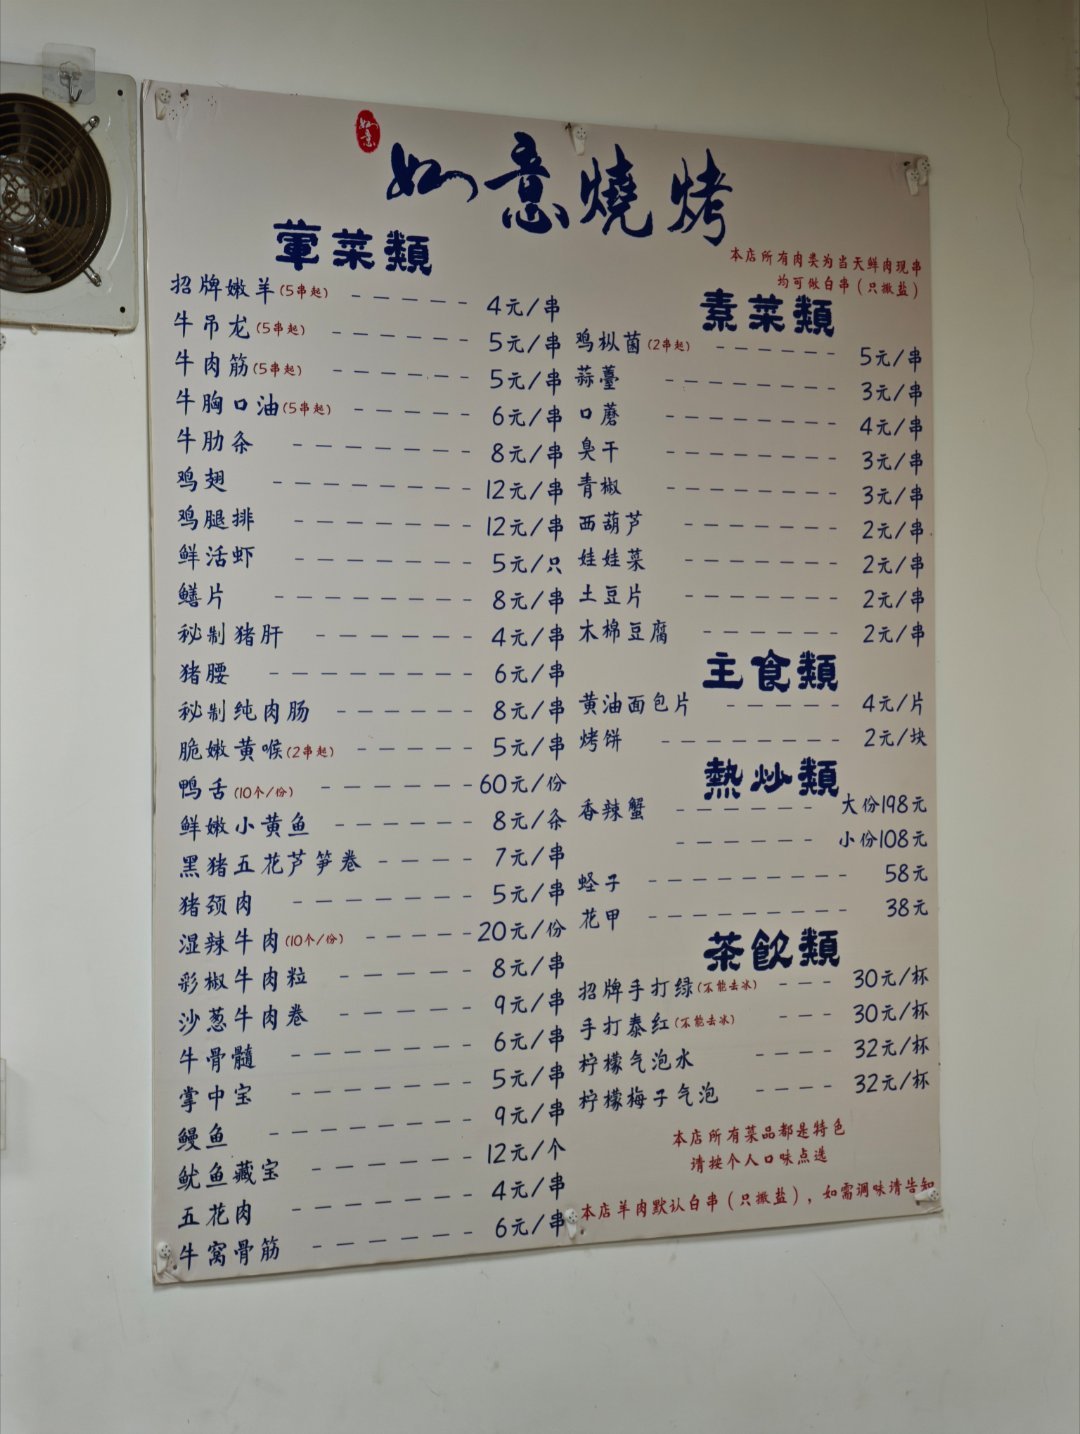 如意
如意燒烤
本店所有肉类为当天鲜肉现串
均可做白串（只撒盐）
葷菜類
招牌嫩羊(5串起) 4元/串
牛吊龙(5串起) 5元/串
牛肉筋(5串起) 5元/串
牛胸口油(5串起) 6元/串
牛肋条 8元/串
鸡翅 12元/串
鸡腿排 12元/串
鲜活虾 5元/只
鳝片 8元/串
秘制猪肝 4元/串
猪腰 6元/串
秘制纯肉肠 8元/串
脆嫩黄喉(2串起) 5元/串
鸭舌(10个/份) 60元/份
鲜嫩小黄鱼 8元/条
黑猪五花芦笋卷 7元/串
猪颈肉 5元/串
湿辣牛肉(10个/份) 20元/份
彩椒牛肉粒 8元/串
沙葱牛肉卷 9元/串
牛骨髓 6元/串
掌中宝 5元/串
鳗鱼 9元/串
鱿鱼藏宝 12元/个
五花肉 4元/串
牛窝骨筋 6元/串
素菜類
鸡枞菌(2串起) 5元/串
蒜薹 3元/串
口蘑 4元/串
臭干 3元/串
青椒 3元/串
西葫芦 2元/串
娃娃菜 2元/串
土豆片 2元/串
木棉豆腐 2元/串
主食類
黄油面包片 4元/片
烤饼 2元/块
熱炒類
香辣蟹 大份198元
小份108元
蛏子 58元
花甲 38元
茶飲類
招牌手打绿(不能去冰) 30元/杯
手打泰红(不能去冰) 30元/杯
柠檬气泡水 32元/杯
柠檬梅子气泡 32元/杯
本店所有菜品都是特色
请按个人口味点选
本店羊肉默认白串（只撒盐），如需调味请告知